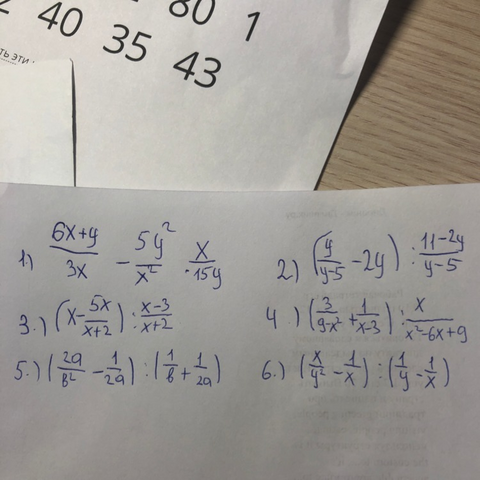 80 1
40 35 43
ть эти
1.) (6x+y)/(3x) - (5y²)/(x²) · x/(15y)
2.) (y/(y-5) - 2y) : (11-2y)/(y-5)
3.) (x - 5x/(x+2)) : (x-3)/(x+2)
4.) (3/(9-x²) + 1/(x-3)) : x/(x²-6x+9)
5.) (2a/в² - 1/2a) : (1/в + 1/2a)
6.) (x/y² - 1/x) : (1/y - 1/x)